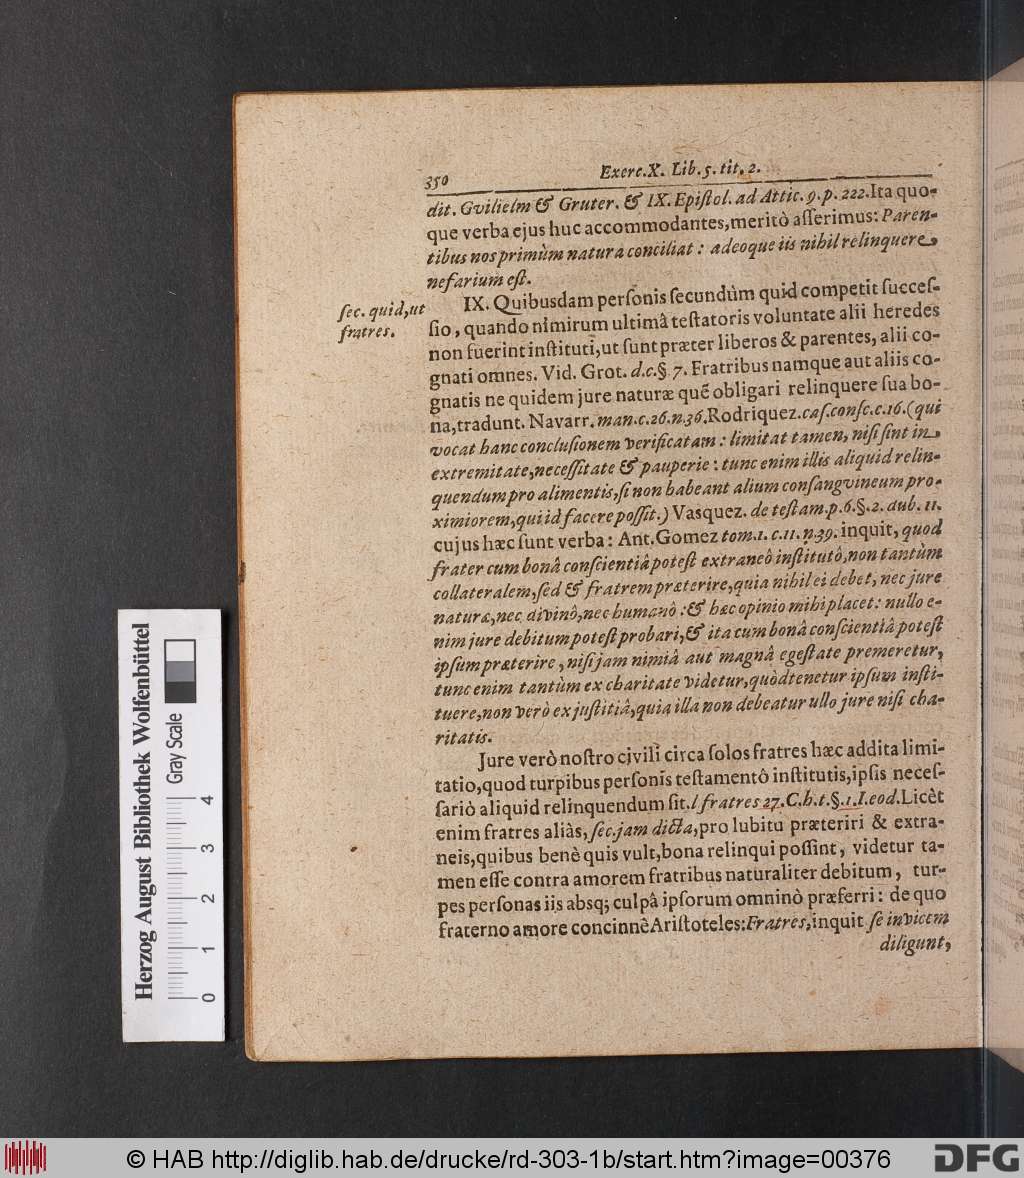 350
Exerc.X. Lib. 5. tit. 2.
dit. Gvilielm & Gruter. & IX. Epiſtol. ad Attic. 9. p. 222. Ita quo-
que verba ejus huc accommodantes, meritò aſſerimus: Paren-
tibus nos primùm natura conciliat: adeoque iis nihil relinquere
nefarium eſt.
ſec. quid, ut
fratres.
IX. Quibusdam perſonis ſecundùm quid competit ſucceſ-
ſio, quando nimirum ultimâ teſtatoris voluntate alii heredes
non fuerint inſtituti, ut ſunt præter liberos & parentes, alii co-
gnati omnes. Vid. Grot. d.c.§ 7. Fratribus namque aut aliis co-
gnatis ne quidem jure naturæ quẽ obligari relinquere ſua bo-
na, tradunt. Navarr. man.c.26.n.36. Rodriquez. caſ.conſc.c.16. (qui
vocat hanc concluſionem verificatam: limitat tamen, niſi ſint in
extremitate, neceſſitate & pauperie: tunc enim illis aliquid relin-
quendum pro alimentis, ſi non habeant alium conſangvineum pro-
ximiorem, qui id facere poſſit.) Vasquez. de teſtam. p.6.§.2. dub. 11.
cujus hæc ſunt verba: Ant. Gomez tom.1. c.11. n.39. inquit, quod
frater cum bonâ conſcientiâ poteſt extraneô inſtitutô, non tantùm
collateralem, ſed & fratrem præterire, quia nihil ei debet, nec jure
naturæ, nec divinò, nec humanò: & hæc opinio mihi placet: nullo e-
nim jure debitum poteſt probari, & ita cum bonâ conſcientiâ poteſt
ipſum præterire, niſi jam nimiâ aut magnâ egeſtate premeretur,
tunc enim tantùm ex charitate videtur, quòd tenetur ipſum inſti-
tuere, non verò ex juſtitiâ, quia illa non debeatur ullo jure niſi cha-
ritatis.
Jure verò noſtro civili circa ſolos fratres hæc addita limi-
tatio, quod turpibus perſonis teſtamentô inſtitutis, ipſis neceſ-
ſariò aliquid relinquendum ſit. l fratres 27. C. h. t. §. 1. I. eod. Licèt
enim fratres aliàs, ſec. jam dicta, pro lubitu præteriri & extra-
neis, quibus benè quis vult, bona relinqui poſſint, videtur ta-
men eſſe contra amorem fratribus naturaliter debitum, tur-
pes perſonas iis absq; culpâ ipſorum omninò præferri: de quo
fraterno amore concinnè Ariſtoteles: Fratres, inquit ſe invicem
diligunt,
Herzog August Bibliothek Wolfenbüttel
Gray Scale
0 1 2 3 4
© HAB http://diglib.hab.de/drucke/rd-303-1b/start.htm?image=00376
DFG